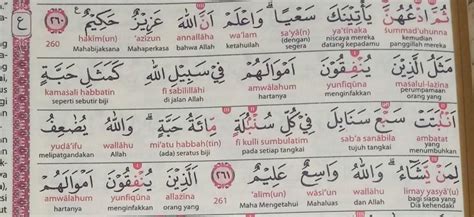 ثُمَّ ادْعُهُنَّ يَأْتِيْنَكَ سَعْيًا ۗ وَاعْلَمْ اَنَّ اللّٰهَ عَزِيْزٌ حَكِيْمٌ ٢٦٠ ع
ṡummad'uhunna ya'tīnaka sa'yā(n) wa'lam annallāha 'azīzun ḥakīm(un) 260
kemudian panggillah mereka niscaya mereka datang kepadamu (dengan) segera ketahuilah bahwa Allah Mahaperkasa Mahabijaksana
مَثَلُ الَّذِيْنَ يُنْفِقُوْنَ اَمْوَالَهُمْ فِيْ سَبِيْلِ اللّٰهِ كَمَثَلِ حَبَّةٍ
maṡalul-lażīna yunfiqūna amwālahum fī sabīlillāhi kamaṡali ḥabbatin
perumpamaan orang yang menginfakkan hartanya di jalan Allah seperti sebutir biji
اَنْۢبَتَتْ سَبْعَ سَنَابِلَ فِيْ كُلِّ سُنْۢبُلَةٍ مِّائَةُ حَبَّةٍ ۗ وَاللّٰهُ يُضٰعِفُ
ambatat sab'a sanābila fī kulli sumbulatim mi'atu ḥabbah(tin) wallāhu yuḍā'ifu
yang menumbuhkan tujuh tangkai pada setiap tangkai (ada) seratus biji Allah melipatgandakan
لِمَنْ يَّشَاۤءُ ۗ وَاللّٰهُ وَاسِعٌ عَلِيْمٌ ٢٦١ اَلَّذِيْنَ يُنْفِقُوْنَ اَمْوَالَهُمْ
limay yasyā'(u) wallāhu wāsi'un 'alīm(un) 261 allażīna yunfiqūna amwālahum
bagi siapa yang Dia kehendaki dan Allah Mahaluas Maha Mengetahui orang yang menginfakkan hartanya